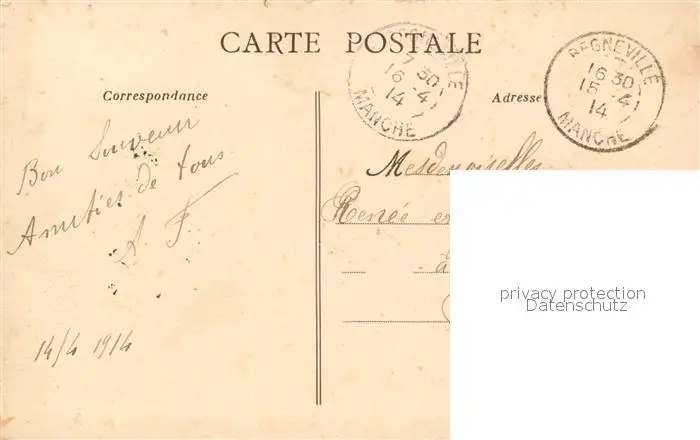 CARTE POSTALE
Correspondance
Bon Souvenir
Amitiés de tous
A. F.
14/4 1914
REGNEVILLE
7 30
16 -4
14
MANCHE
Adresse
REGNEVILLE
16 30
15 -4
14
MANCHE
Mesdemoiselles
Renée et
à
privacy protection
Datenschutz